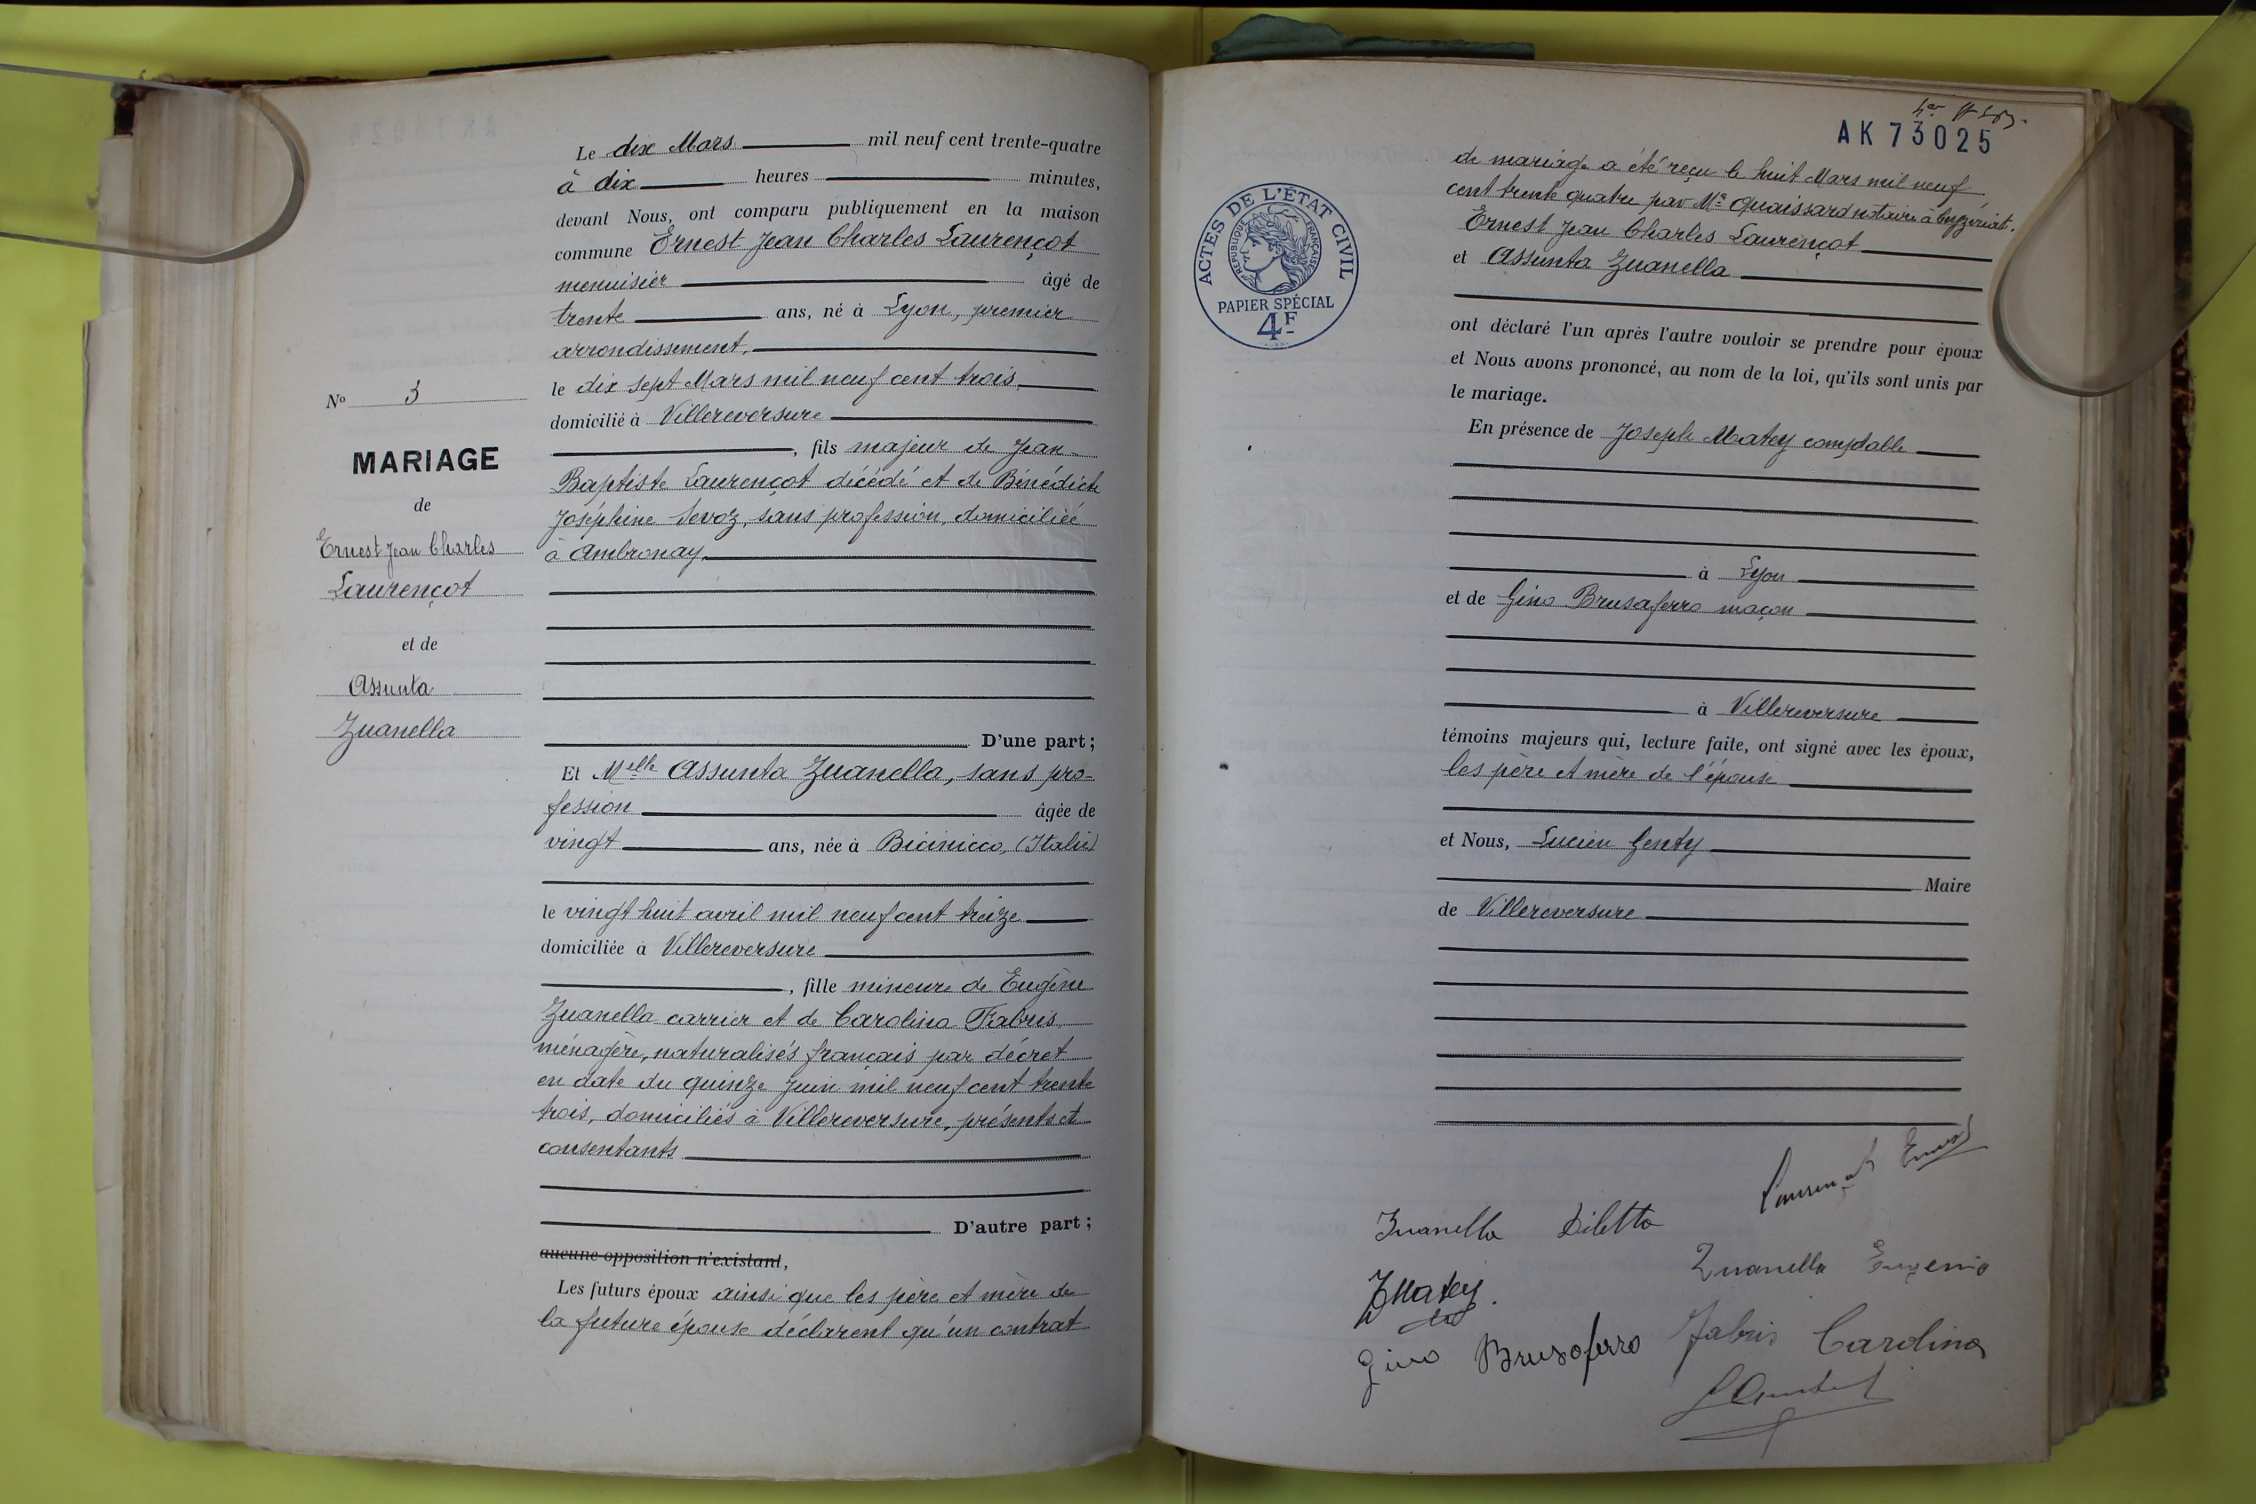 Le dix Mars mil neuf cent trente-quatre
à dix heures minutes,
devant Nous, ont comparu publiquement en la maison
commune Ernest Jean Charles Laurençot
menuisier âgé de
trente ans, né à Lyon, premier
arrondissement,
le dix sept Mars mil neuf cent trois
domicilié à Villereversure
, fils majeur de Jean
Baptiste Laurençot décédé et de Bénédicte
Joséphine Sevoz, sans profession, domiciliée
à Ambronay,
No 3
MARIAGE
de
Ernest Jean Charles
Laurençot
et de
Assunta
Zuanella
D'une part;
Et Melle Assunta Zuanella, sans pro-
fession âgée de
vingt ans, née à Bicinicco, (Italie)
le vingt huit avril mil neuf cent treize
domiciliée à Villereversure
, fille mineure de Eugène
Zuanella carrier et de Carolina Fabris
ménagère, naturalisés français par décret
en date du quinze Juin mil neuf cent trente
trois, domiciliés à Villereversure, présents et
consentants
D'autre part;
aucune opposition n'existant,
Les futurs époux ainsi que les père et mère de
la future épouse déclarent qu'un contrat
AK 73025
de mariage a été reçu le huit Mars mil neuf
cent trente quatre par Me Quaissard notaire à Ceyzériat.
Ernest Jean Charles Laurençot
et Assunta Zuanella
ACTES DE L'ÉTAT CIVIL
RÉPUBLIQUE FRANÇAISE
PAPIER SPÉCIAL
4F
ont déclaré l'un après l'autre vouloir se prendre pour époux
et Nous avons prononcé, au nom de la loi, qu'ils sont unis par
le mariage.
En présence de Joseph Matey comptable
à Lyon
et de Gino Brusaferro maçon
à Villereversure
témoins majeurs qui, lecture faite, ont signé avec les époux,
les père et mère de l'épouse
et Nous, Lucien Genty
Maire
de Villereversure
Laurençot Ernest
Zuanella Diletta
Zuanella Eugenio
JMatey
Gino Brusaferro
Fabris Carolina